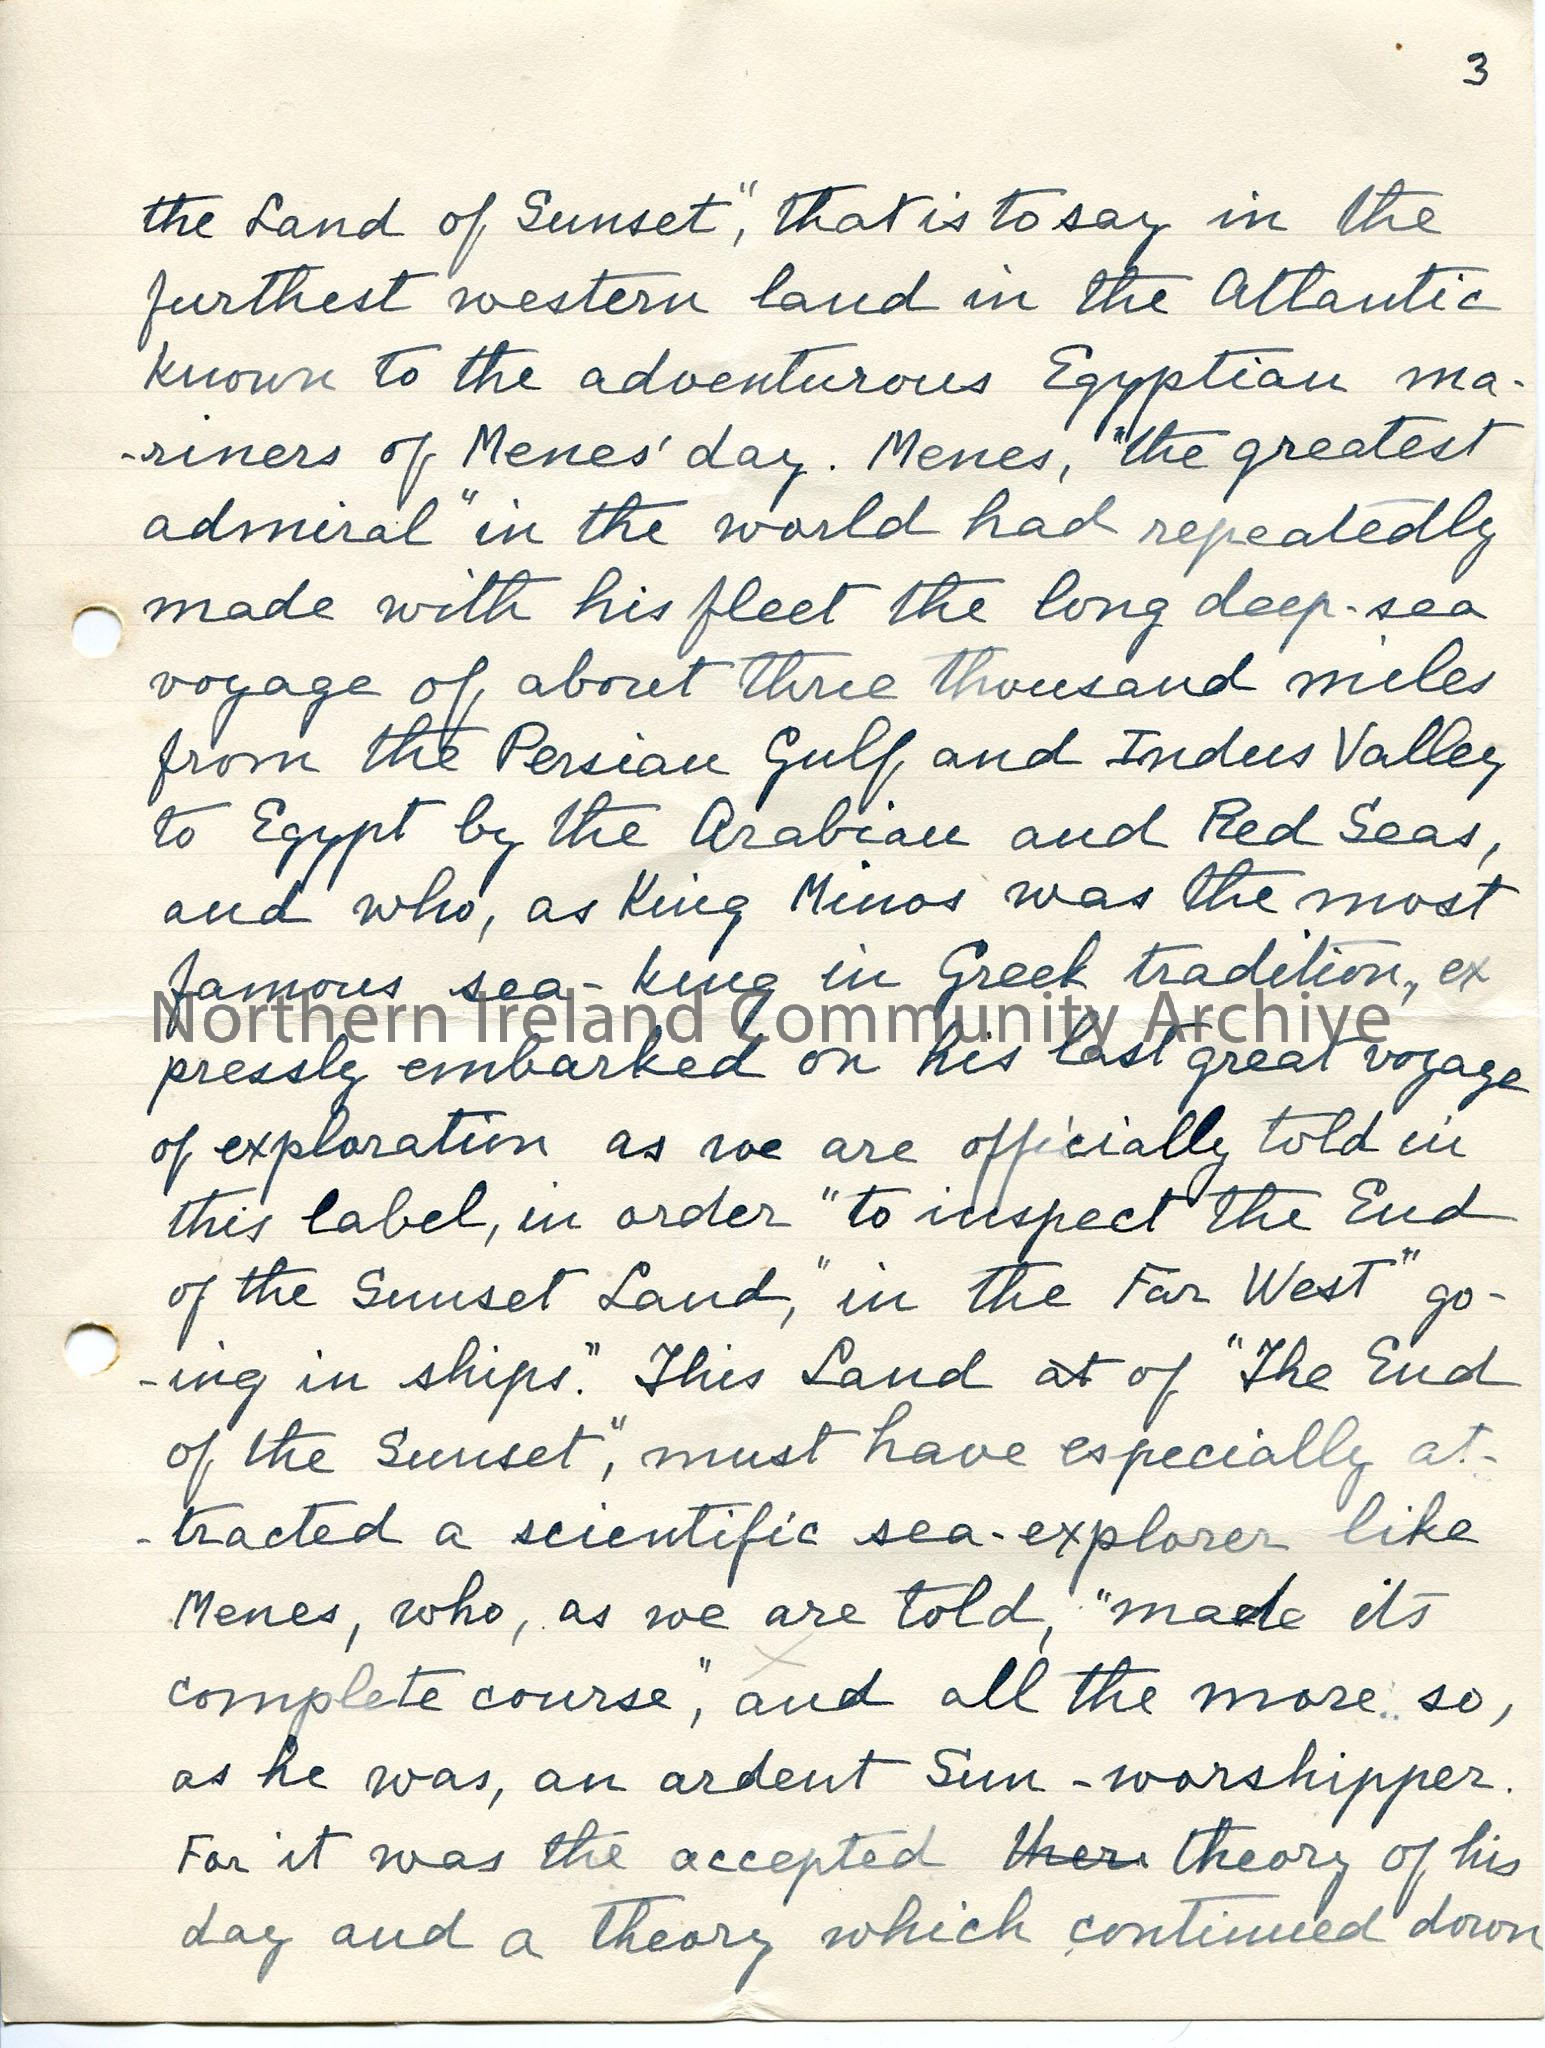 3
the Land of Sunset", that is to say in the
furthest western land in the Atlantic
known to the adventurous Egyptian ma-
-riners of Menes' day. Menes, "the greatest
admiral" in the world had repeatedly
made with his fleet the long deep-sea
voyage of about three thousand miles
from the Persian Gulf and Indus Valley
to Egypt by the Arabian and Red Seas,
and who, as King Minos was the most
famous sea-king in Greek tradition, ex
Northern Ireland Community Archive
pressly embarked on his last great voyage
of exploration as we are officially told in
this label, in order "to inspect the End
of the Sunset Land," in the Far West" go-
-ing in ships". This Land at of "The End
of the Sunset", must have especially at-
-tracted a scientific sea-explorer like
Menes, who, as we are told, "made its
complete course", and all the more so,
as he was, an ardent Sun-worshipper.
For it was the accepted theory of his
day and a theory which continued down